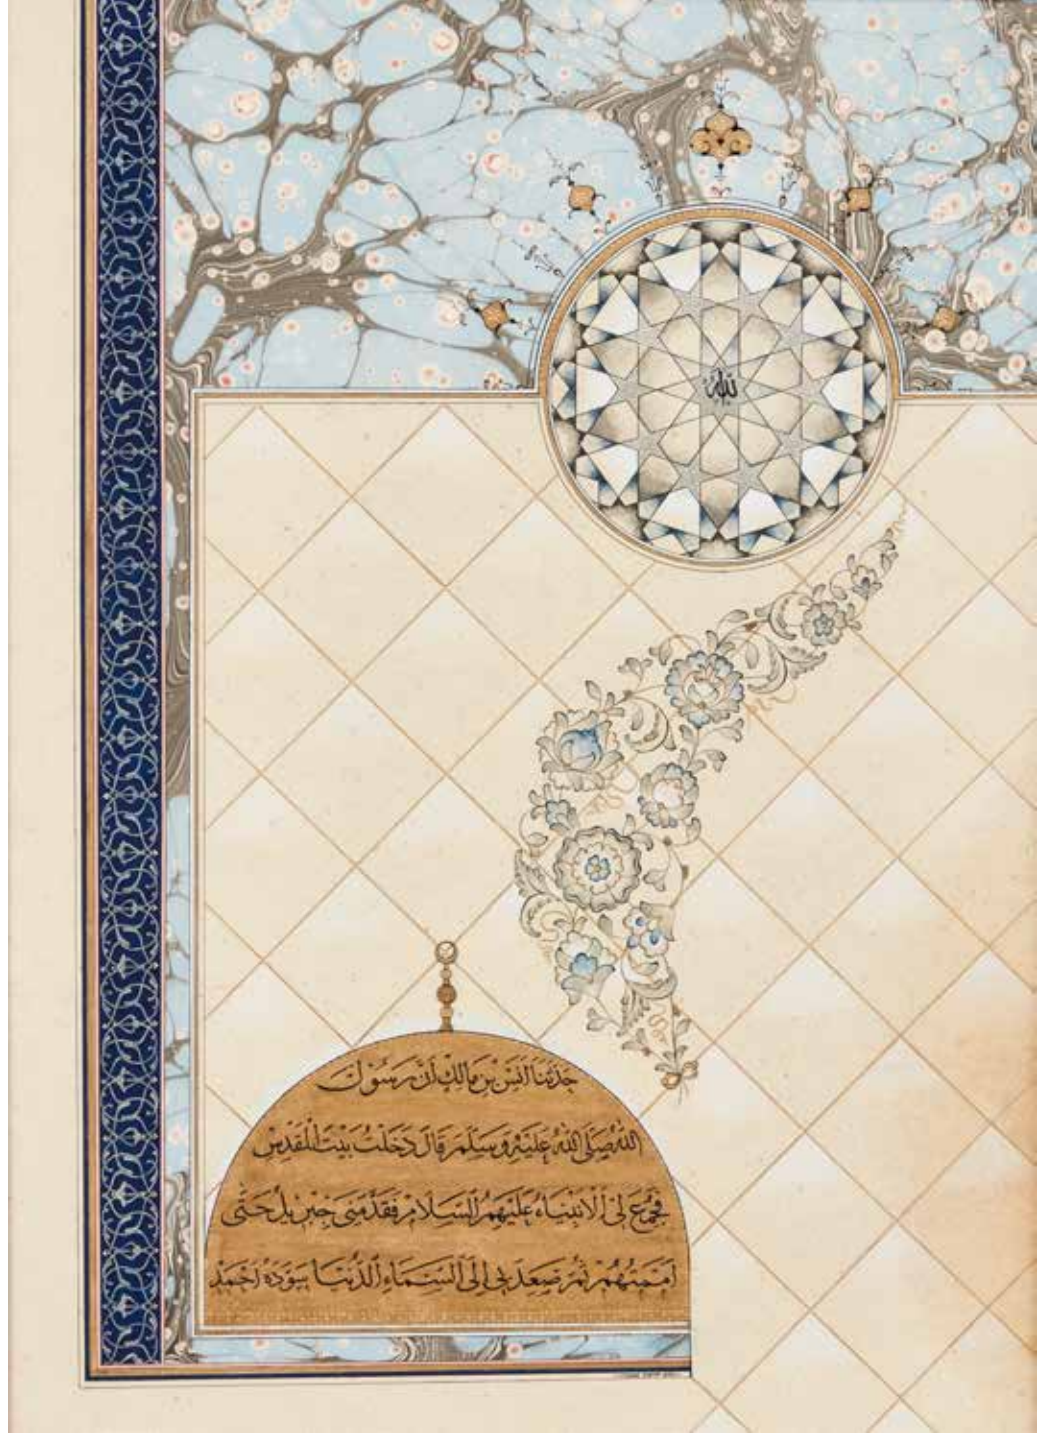 الله
حَدَّثَنَا أَنَسُ بْنُ مَالِكٍ أَنَّ رَسُولَ
اللهِ صَلَّى اللهُ عَلَيْهِ وَسَلَّمَ قَالَ دَخَلْتُ بَيْتَ الْمَقْدِسِ
فَجُمِعَ لِيَ الْأَنْبِيَاءُ عَلَيْهِمُ السَّلَامُ فَقَدَّمَنِي جِبْرِيلُ حَتَّى
أَمَمْتُهُمْ ثُمَّ صَعِدَ بِي إِلَى السَّمَاءِ الدُّنْيَا سوده احمد